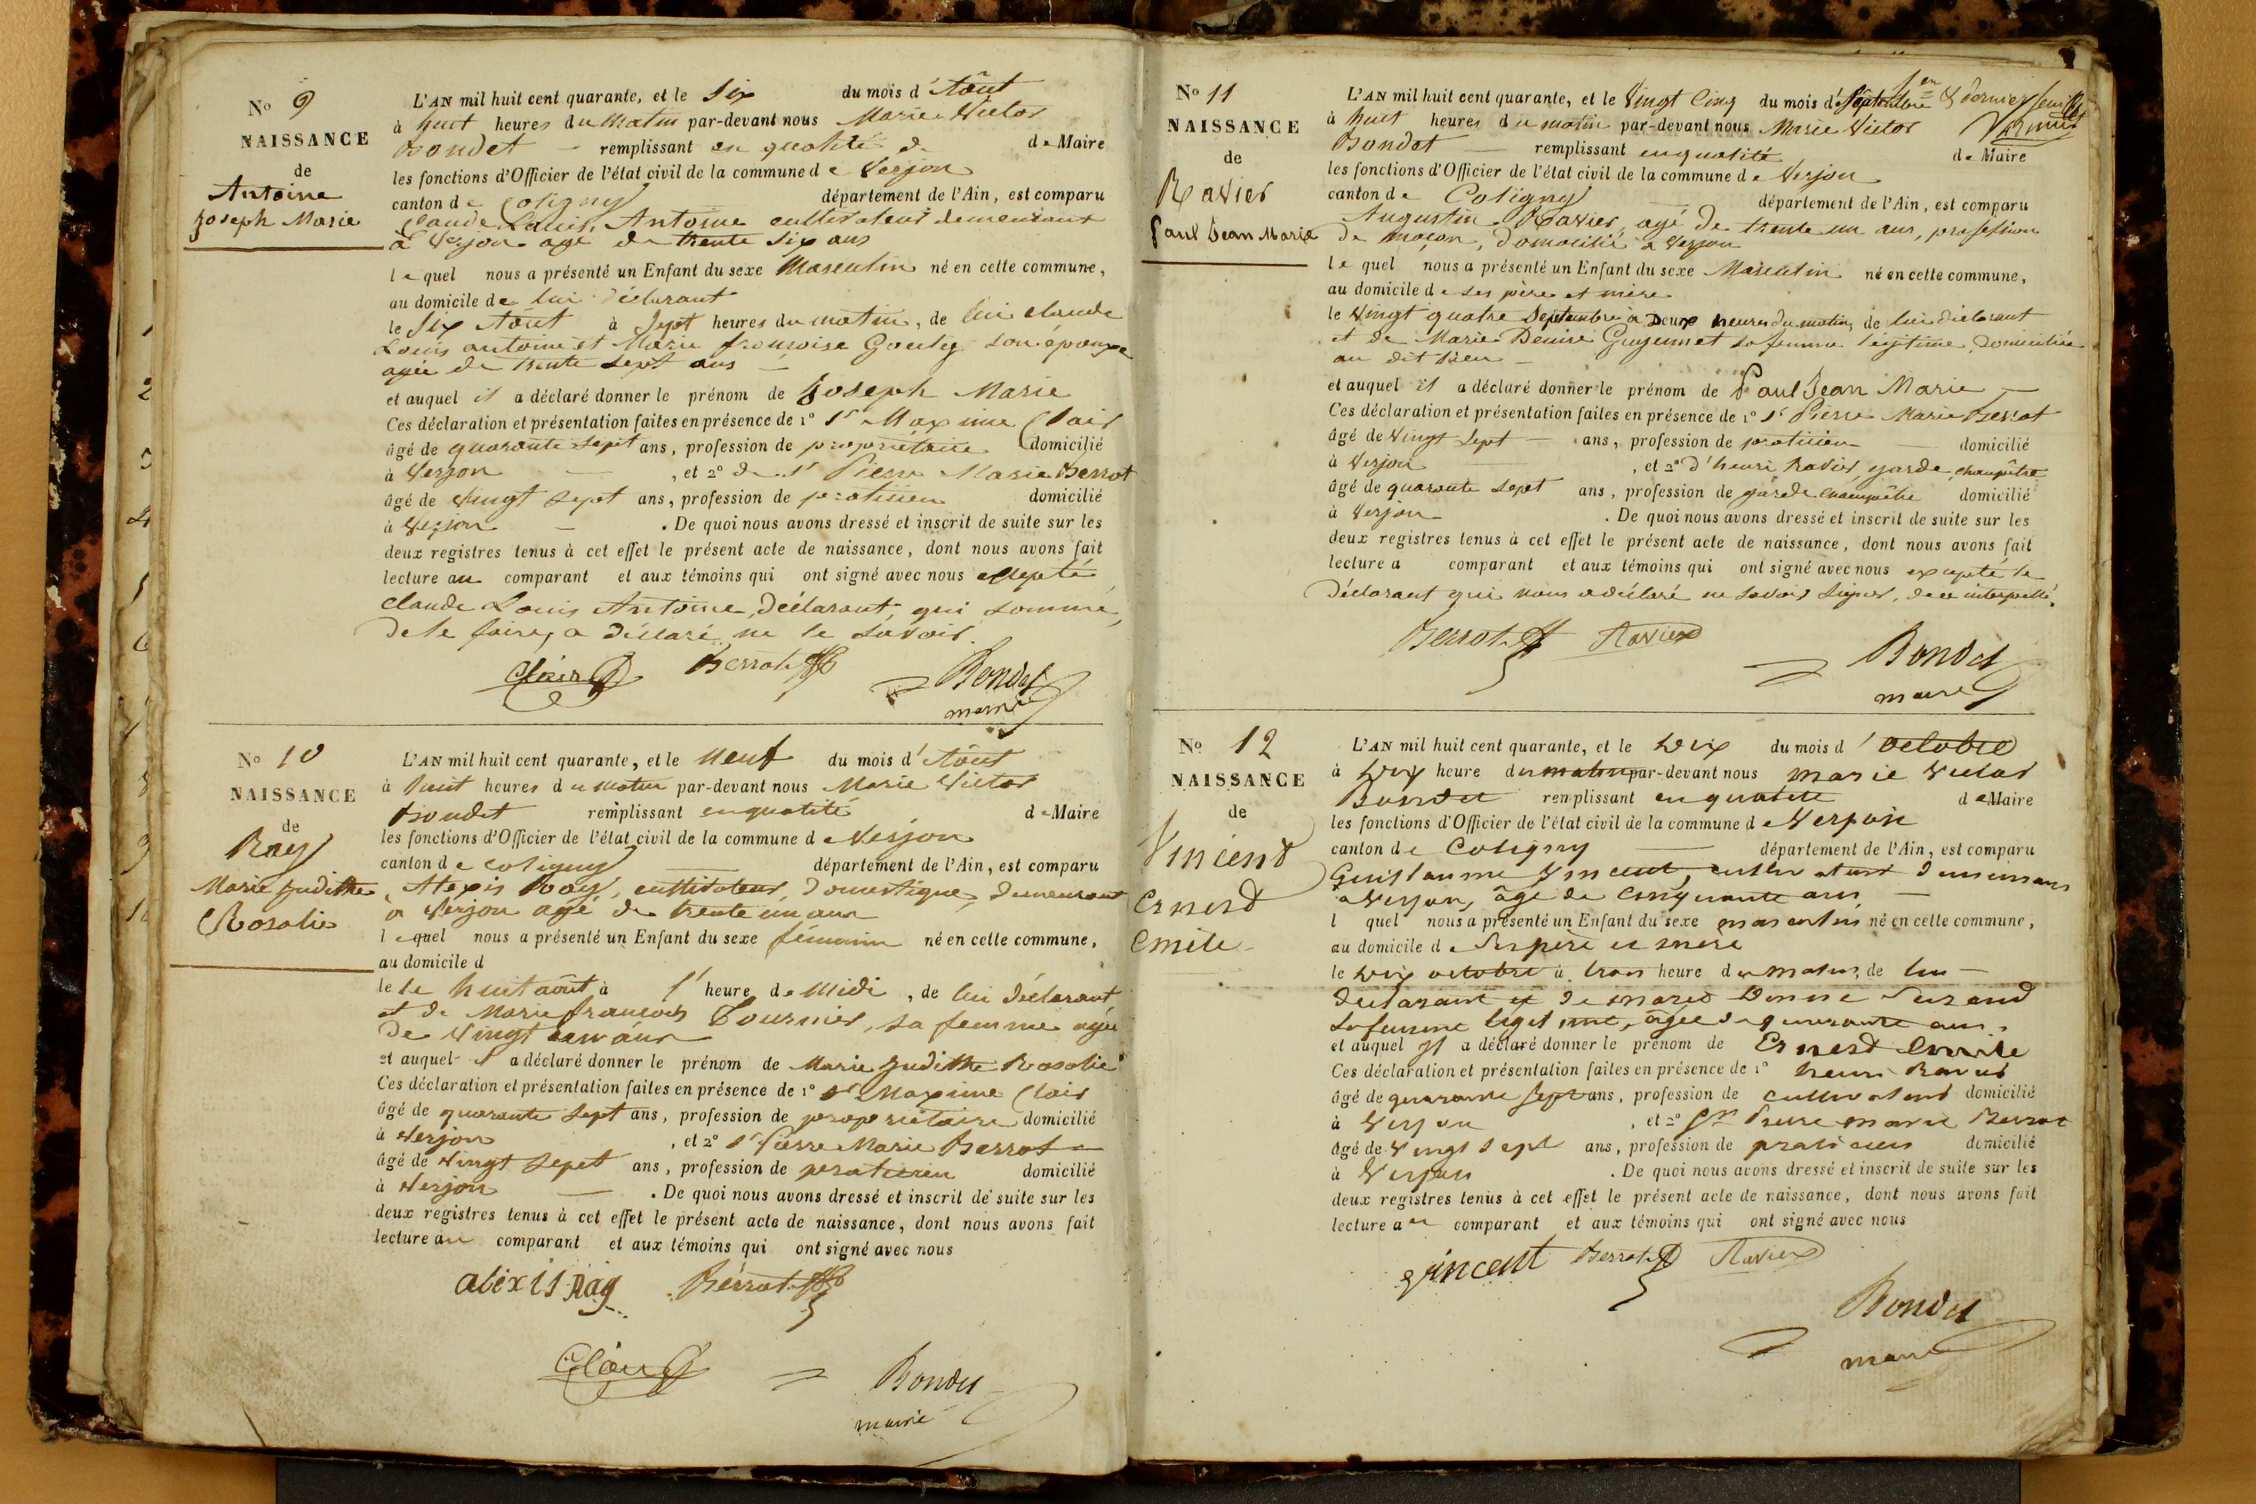 1
2
3
4
5
6
7
8
9
10
N° 9
NAISSANCE
de
Antoine
Joseph Marie
L'AN mil huit cent quarante, et le Six du mois d'Aôut
à huit heures du matin par-devant nous Marie Victor
Bondet remplissant en qualité de de Maire
les fonctions d'Officier de l'état civil de la commune de Verjon
canton de Coligny département de l'Ain, est comparu
Claude Louis Antoine cultivateur demeurant
à Verjon agé de trente six ans
lequel nous a présenté un Enfant du sexe Masculin né en cette commune,
au domicile de lui déclarant
le Six Aôut à Sept heures du matin, de lui claude
Louis antoine et Marie françoise Gouly son épouse
agée de trente sept ans
et auquel il a déclaré donner le prénom de Joseph Marie
Ces déclaration et présentation faites en présence de 1° Sr Maxime Clair
âgé de quarante sept ans, profession de propriétaire domicilié
à Verjon , et 2° de Sr Pierre Marie Berrot
âgé de Vingt sept ans, profession de praticien domicilié
à Verjon . De quoi nous avons dressé et inscrit de suite sur les
deux registres tenus à cet effet le présent acte de naissance, dont nous avons fait
lecture au comparant et aux témoins qui ont signé avec nous excepté
claude Louis Antoine, déclarant qui sommé,
de le faire, a déclaré ne le savoir.
Clair Berrot Bondet
maire
N° 10
NAISSANCE
de
Ray
Marie Judithe
Rosalie
L'AN mil huit cent quarante, et le Neuf du mois d'Aôut
à huit heures du matin par-devant nous Marie Victor
Bondet remplissant en qualité de Maire
les fonctions d'Officier de l'état civil de la commune de Verjon
canton de coligny département de l'Ain, est comparu
Alexis Ray, cultivateur, domestique, demeurant
à Verjon agé de trente un ans
lequel nous a présenté un Enfant du sexe féminin né en cette commune,
au domicile d
le le huit aôut à 1' heure de Midi, de lui déclarant
et de Marie françois Tournier, sa femme agée
de Vingt ans
et auquel il a déclaré donner le prénom de Marie Judithe Rosalie
Ces déclaration et présentation faites en présence de 1° Sr Maxime Clair
âgé de quarante sept ans, profession de propriétaire domicilié
à Verjon , et 2° Sr Pierre Marie Berrot
âgé de Vingt sept ans, profession de praticien domicilié
à Verjon . De quoi nous avons dressé et inscrit de suite sur les
deux registres tenus à cet effet le présent acte de naissance, dont nous avons fait
lecture au comparant et aux témoins qui ont signé avec nous
alexis Ray Berrot
Clair Bondet
maire
N° 11
NAISSANCE
de
Ravier
Paul Jean Marie
&dernier feuillet
L'AN mil huit cent quarante, et le Vingt Cinq du mois d'Septembre
à huit heures du matin par-devant nous Marie Victor
Bondet remplissant en qualité de Maire
les fonctions d'Officier de l'état civil de la commune de Verjon
canton de Coligny département de l'Ain, est comparu
Augustin Ravier, agé de trente un ans, profession
de maçon, domicilié à Verjon
lequel nous a présenté un Enfant du sexe Masculin né en cette commune,
au domicile de ses père et mère
le Vingt quatre Septembre à Deux heures du matin, de lui déclarant
et de Marie Denise Guyennet sa femme légitime, domiciliée
au dit lieu
et auquel il a déclaré donner le prénom de Paul Jean Marie
Ces déclaration et présentation faites en présence de 1° Sr Pierre Marie Berrot
âgé de Vingt Sept ans, profession de praticien domicilié
à Verjon , et 2° d'henri Ravier, garde champêtre
âgé de quarante sept ans, profession de garde champêtre domicilié
à Verjon . De quoi nous avons dressé et inscrit de suite sur les
deux registres tenus à cet effet le présent acte de naissance, dont nous avons fait
lecture a comparant et aux témoins qui ont signé avec nous excepté le
Déclarant qui nous a déclaré ne savoir signer, de ce interpellé.
Berrot Ravier Bondet
maire
N° 12
NAISSANCE
de
Vincent
Ernest
Emile
L'AN mil huit cent quarante, et le Dix du mois d'octobre
à Dix heure du matin par-devant nous marie Victor
Bondet remplissant en qualité de Maire
les fonctions d'Officier de l'état civil de la commune de Verjon
canton de Coligny département de l'Ain, est comparu
Guillaume Vincent, cultivateur demeurant
à Verjon, âgé de cinquante ans
l quel nous a présenté un Enfant du sexe masculin né en cette commune,
au domicile de ses père et mère
le Dix octobre à trois heure du matin, de lui
déclarant et de marie Durand
sa femme légitime, âgée de quarante ans.
et auquel il a déclaré donner le prénom de Ernest Emile
Ces déclaration et présentation faites en présence de 1° henri Ravier
âgé de quarante sept ans, profession de cultivateur domicilié
à Verjon , et 2° Sr Pierre marie Berrot
âgé de Vingt Sept ans, profession de praticien domicilié
à Verjon . De quoi nous avons dressé et inscrit de suite sur les
deux registres tenus à cet effet le présent acte de naissance, dont nous avons fait
lecture au comparant et aux témoins qui ont signé avec nous
Vincent Berrot Ravier
Bondet
maire